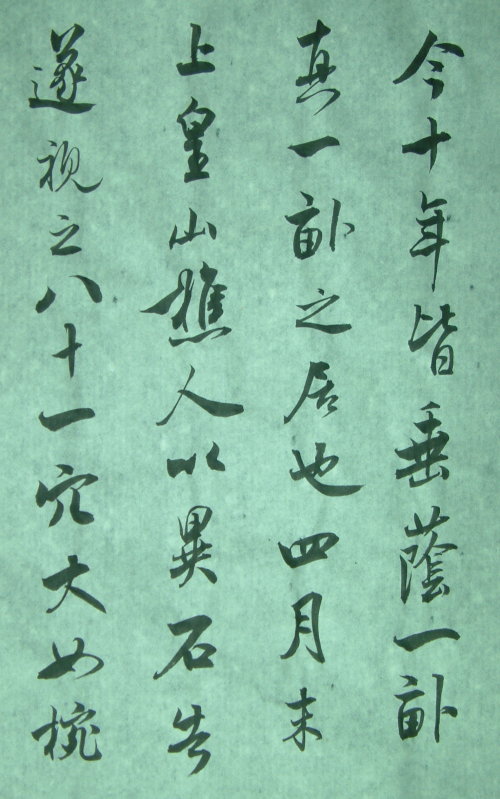 今十年皆垂蔭一畝
真一畝之居也四月末
上皇山樵人以異石告
遂視之八十一穴大如椀